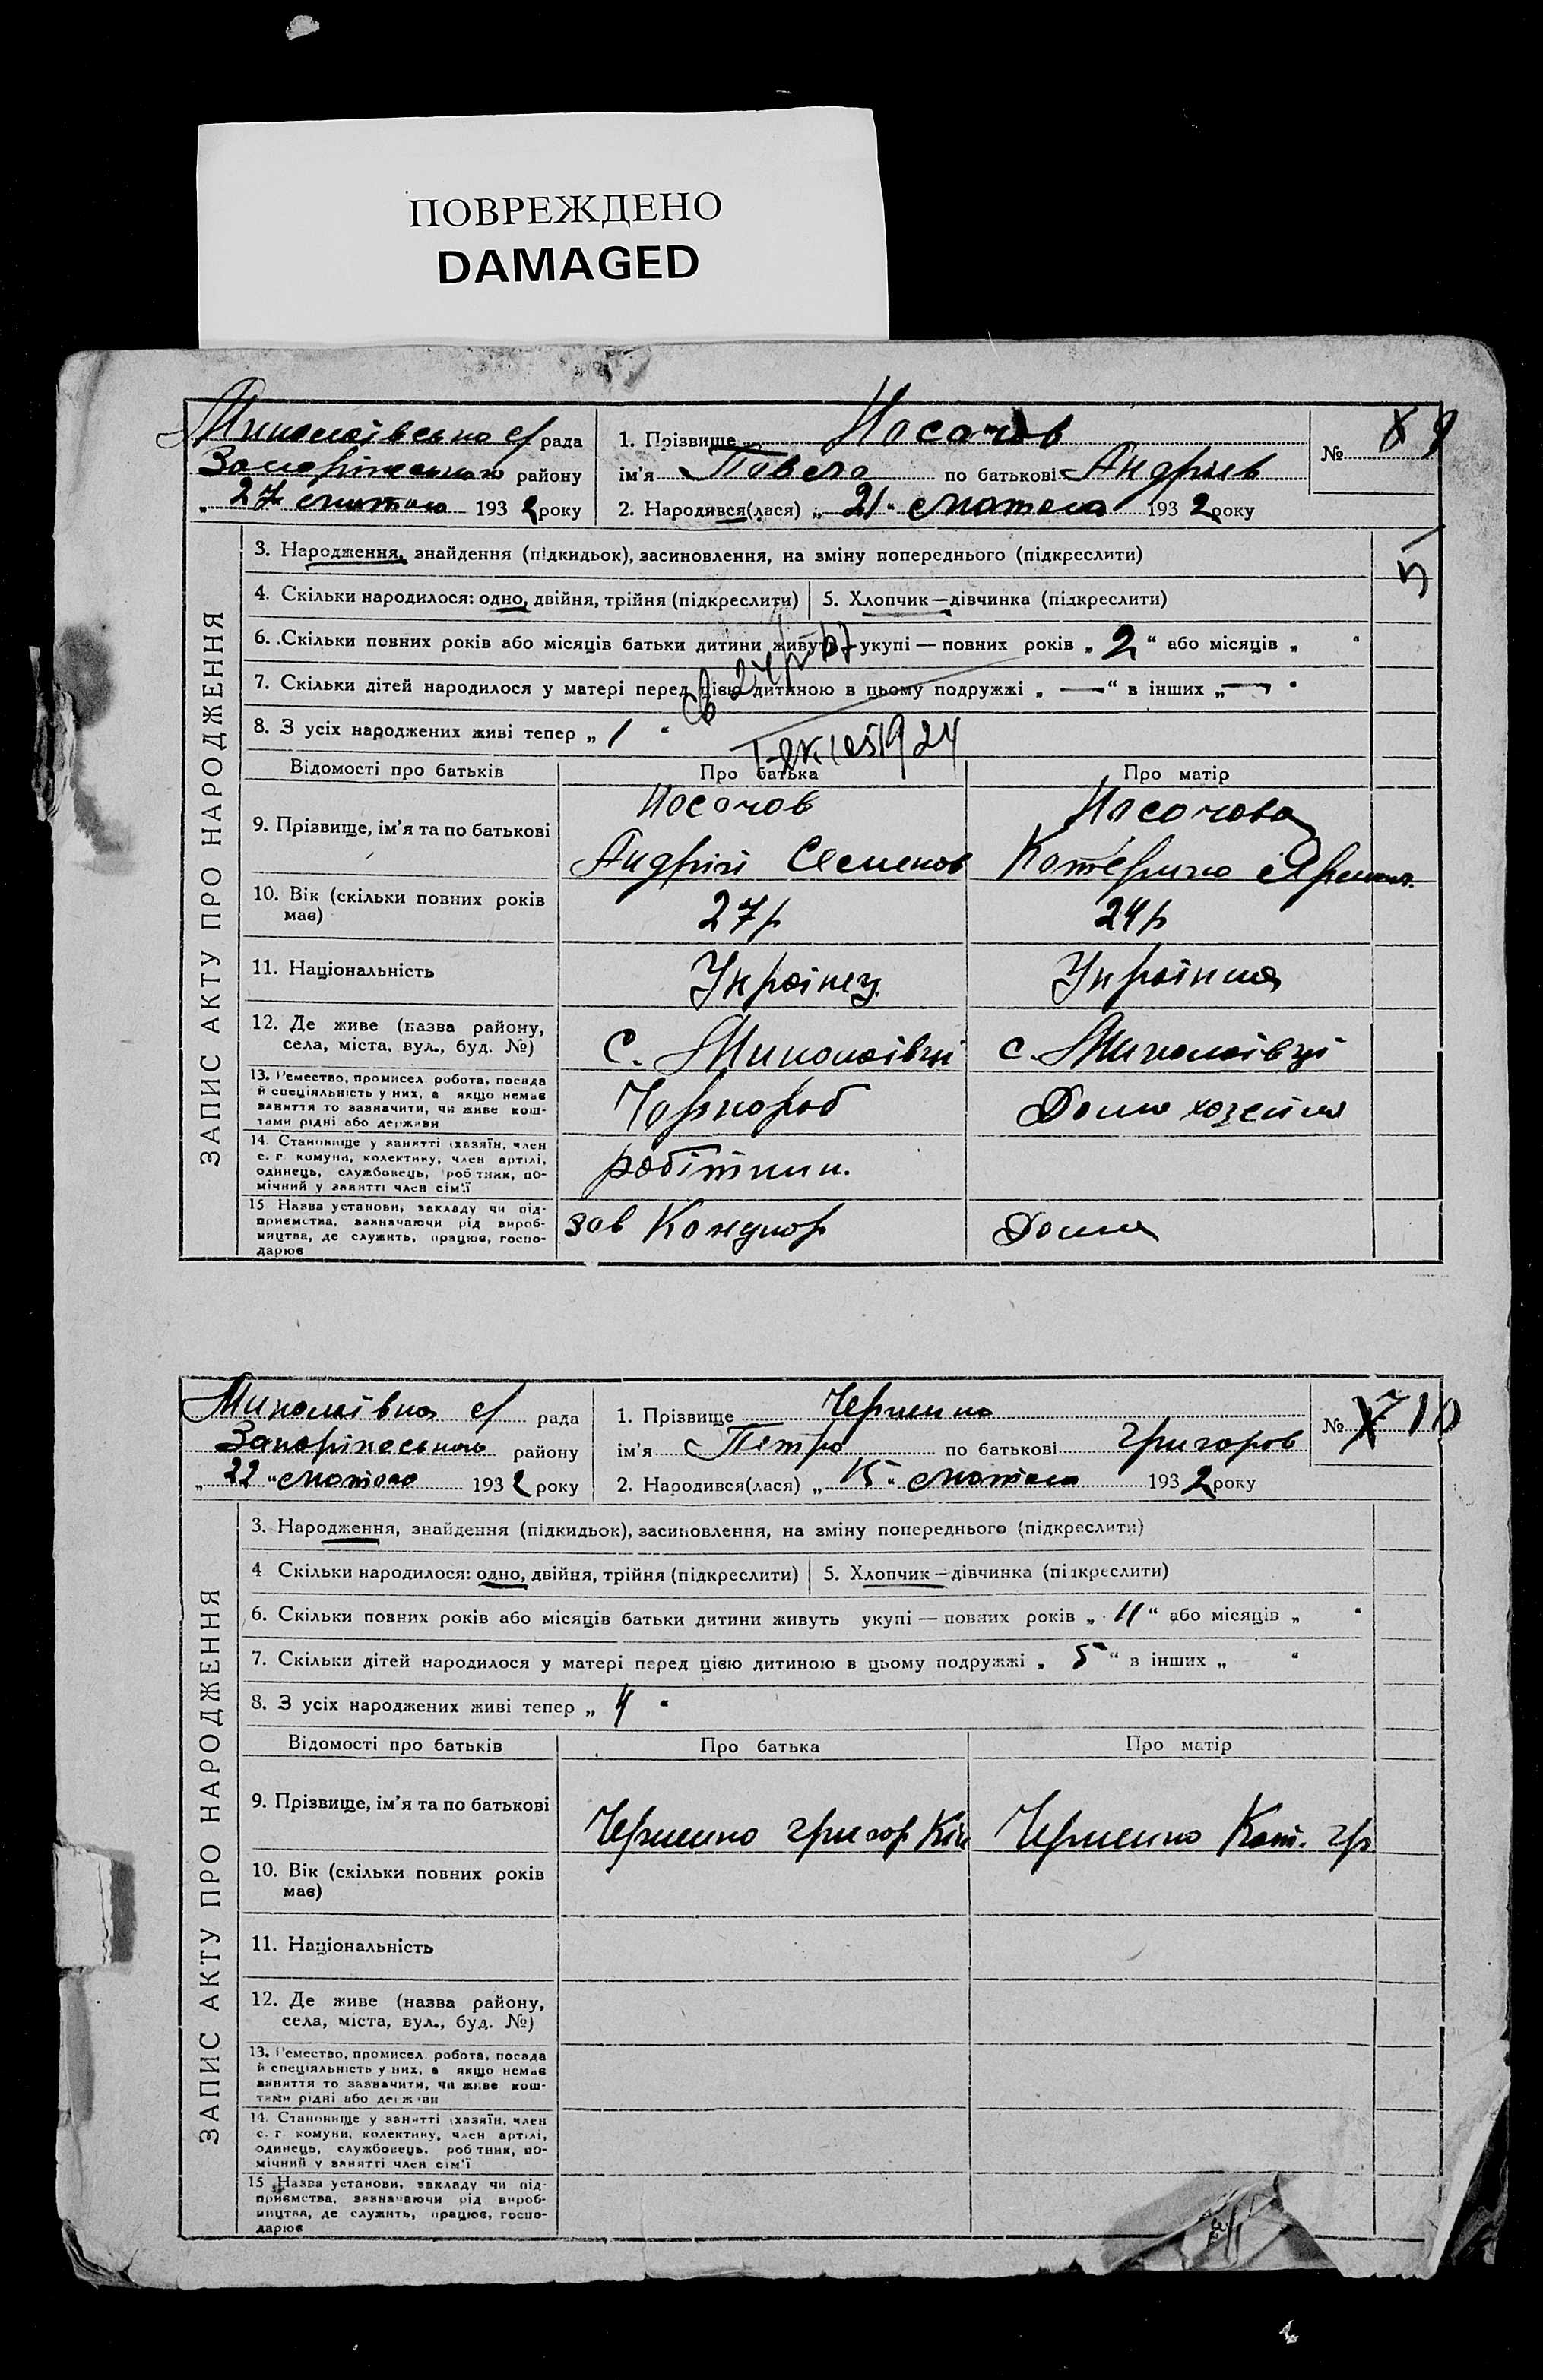 ПОВРЕЖДЕНО
DAMAGED
Миколаївська с/рада
Запоріжського району
„27 лютого 1932 року
1. Прізвище Носачов
ім’я Павело по батькові Андрыєв
2. Народився(лася) „21“ лютого 1932 року
№ 9
5
ЗАПИС АКТУ ПРО НАРОДЖЕННЯ
3. Народження, знайдення (підкидьок), засиновлення, на зміну попереднього (підкреслити)
4. Скільки народилося: одно, двійня, трійня (підкреслити)
5. Хлопчик—дівчинка (підкреслити)
6. Скільки повних років або місяців батьки дитини живуть укупі — повних років „2“ або місяців „ “
7. Скільки дітей народилося у матері перед цією дитиною в цьому подружжі „—“ в інших „— “
8. З усіх народжених живі тепер „1 “
Відомості про батьків Про батька Про матір
9. Прізвище, ім’я та по батькові
Носачов
Андрій Семенов
Носачова
Катерина
10. Вік (скільки повних років має)
27р
24р
11. Національність
Українец
Українка
12. Де живе (назва району, села, міста, вул., буд. №)
с. Миколаівці
с. Миколаівці
13. Ремество, промисел, робота, посада й спеціяльність у них, а якщо немає заняття то зазначити, чи живе коштами рідні або держави
Чорнороб
Дома хозейка
14. Становище у занятті (хазяїн, член с. г. комуни, колективу, член артілі, одинець, службовець, робітник, помічний у занятті член сім’ї
робітник.
15 Назва установи, закладу чи підприємства, зазначаючи рід виробництва, де служить, працює, господарює
зав
Дома
Миколаівка с/ рада
Запоріжського району
„22 “ лютого 1932 року
1. Прізвище Черненко
ім’я Петро по батькові Григоров
2. Народився(лася) „15“ лютого 1932 року
№ 10
ЗАПИС АКТУ ПРО НАРОДЖЕННЯ
3. Народження, знайдення (підкидьок), засиновлення, на зміну попереднього (підкреслити)
4 Скільки народилося: одно, двійня, трійня (підкреслити)
5. Хлопчик—дівчинка (підкреслити)
6. Скільки повних років або місяців батьки дитини живуть укупі — повних років „11“ або місяців „ “
7. Скільки дітей народилося у матері перед цією дитиною в цьому подружжі „5“ в інших „ “
8. З усіх народжених живі тепер „4 “
Відомості про батьків Про батька Про матір
9. Прізвище, ім’я та по батькові
Черненко Григор
Черненко Кат. Гр
10. Вік (скільки повних років має)
11. Національність
12. Де живе (назва району, села, міста, вул., буд. №)
13. Ремество, промисел, робота, посада й спеціяльність у них, а якщо немає заняття то зазначити, чи живе коштами рідні або держави
14. Становище у занятті (хазяїн, член с. г. комуни, колективу, член артілі, одинець, службовець, робітник, помічний у занятті член сім’ї
15 Назва установи, закладу чи підприємства, зазначаючи рід виробництва, де служить, працює, господарює